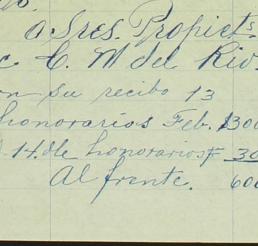 a Sres. Propiets
C. M del Rio.
su recibo 13
honorarios Feb. $300
14. de honorarios F 30
Al frente. 600